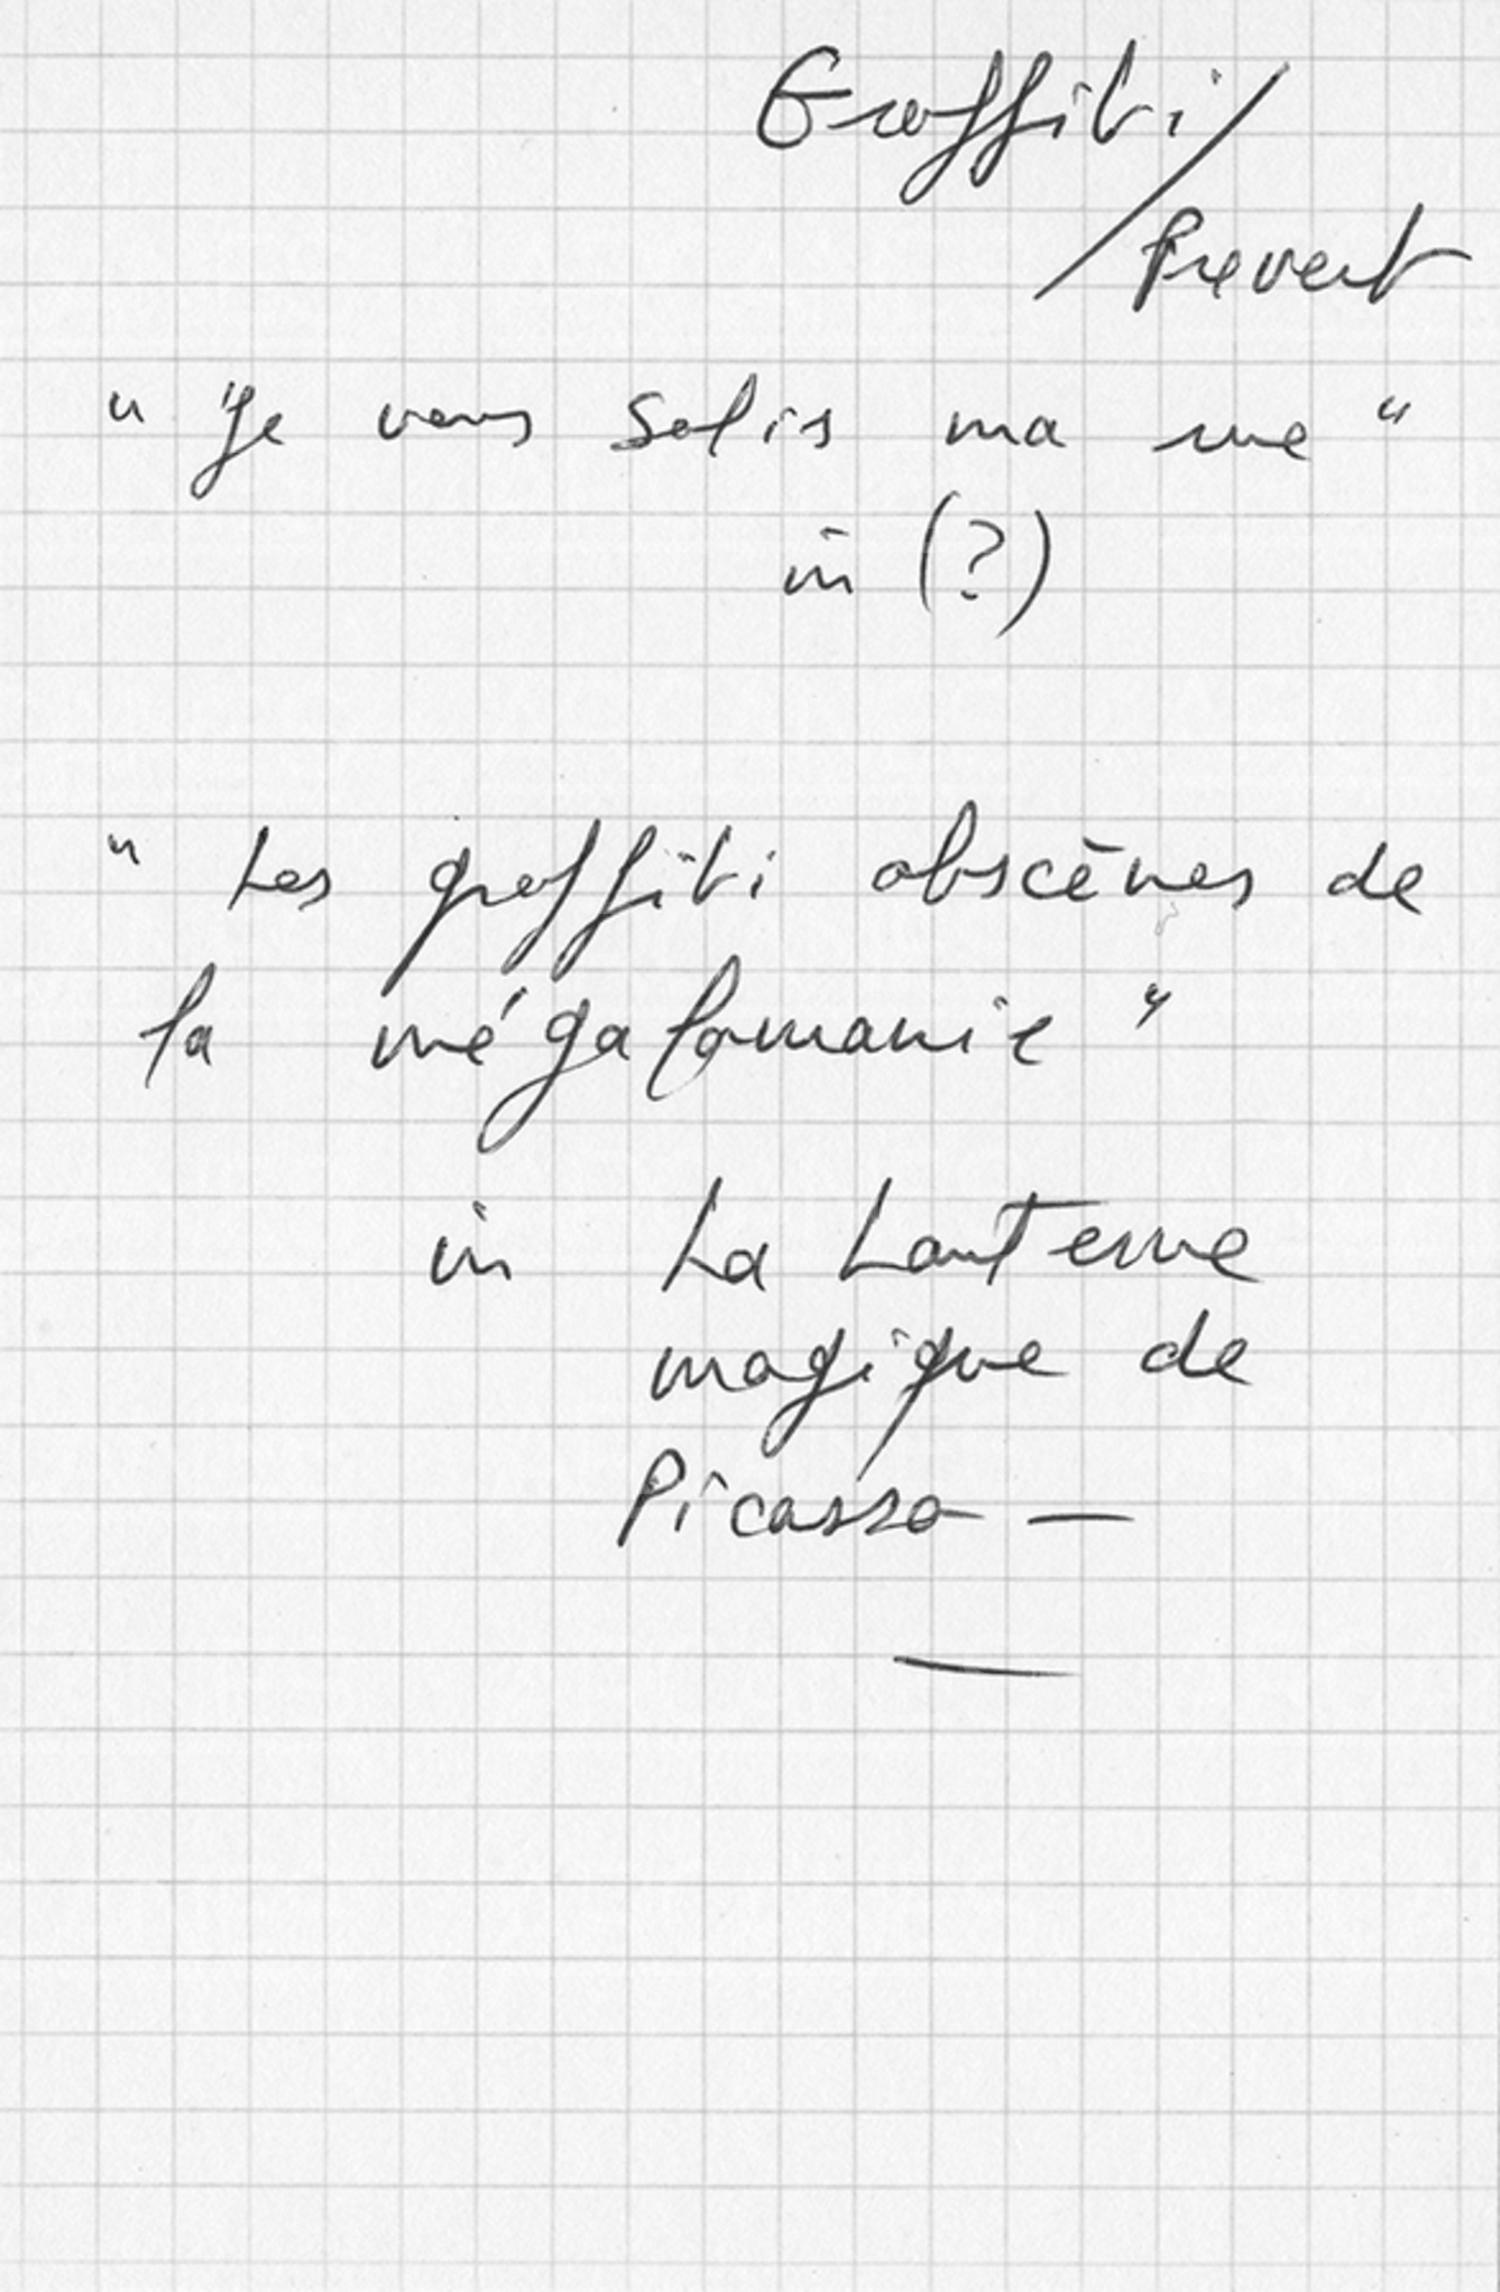 Graffiti/
Prevert
" Je vous salis ma rue "
in (?)
" Les graffiti obscènes de
la mégalomanie "
in La Lanterne
magique de
Picasso —